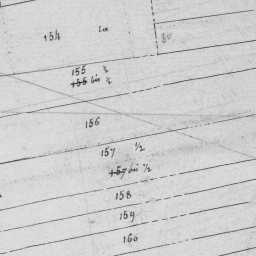 154
155 ½
155 bis ½
156
157 ½
157 bis ½
158
159
160